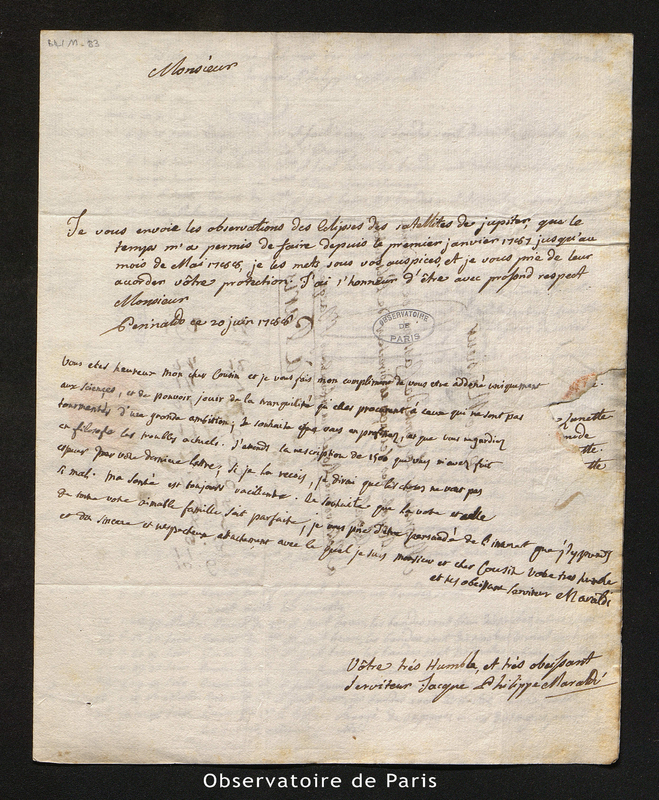 B4/M-83
Monsieur
Je vous envoie les observations des Eclipses des satellites de jupiter, que le
temps m'a permis de faire depuis le premier janvier 1787 jusqu'au
mois de Mai 1788, je les mets sous vos auspices, et je vous prie de leur
acorder vôtre protection. J'ai l'honneur d'être avec profond respect
Monsieur
Perinaldo ce 20 juin 1788
OBSERVATOIRE
DE
PARIS
Vous etes heureux mon cher Cousin et je vous fais mon compliment de vous etre adoné uniquement
aux sciences, et de pouvoir jouir de la tranquilité qu'elles procurent à ceux qui ne sont pas
tourmentés d'une grande ambition; Je souhaite que vous en profitiez, et que vous regardiez
en filosofe les troubles actuels. J'attends la rescription de que vous m'avez fait
esperer par votre derniere lettre, si je la reçois, je dirai que les choses ne vont pas
si mal. ma santé est toujours vacillante. Je souhaite que la votre et celle
de toute votre aimable famille soit parfaite, je vous prie d'etre persuadé de l'interet que j'y prends
et du sincere et respectueux attachement avec le quel je suis monsieur et cher Cousin Votre tres humble
et tres obeissant serviteur Maraldi
Vôtre très Humble, et très obeissant
Serviteur Jacque Philippe Maraldi
Observatoire de Paris